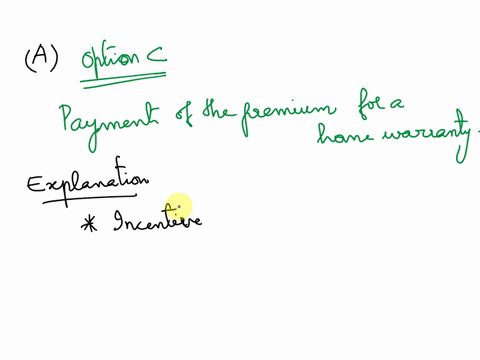 (A) Option C
Payment of the premium for a
home warranty.
Explanation
* Incentive